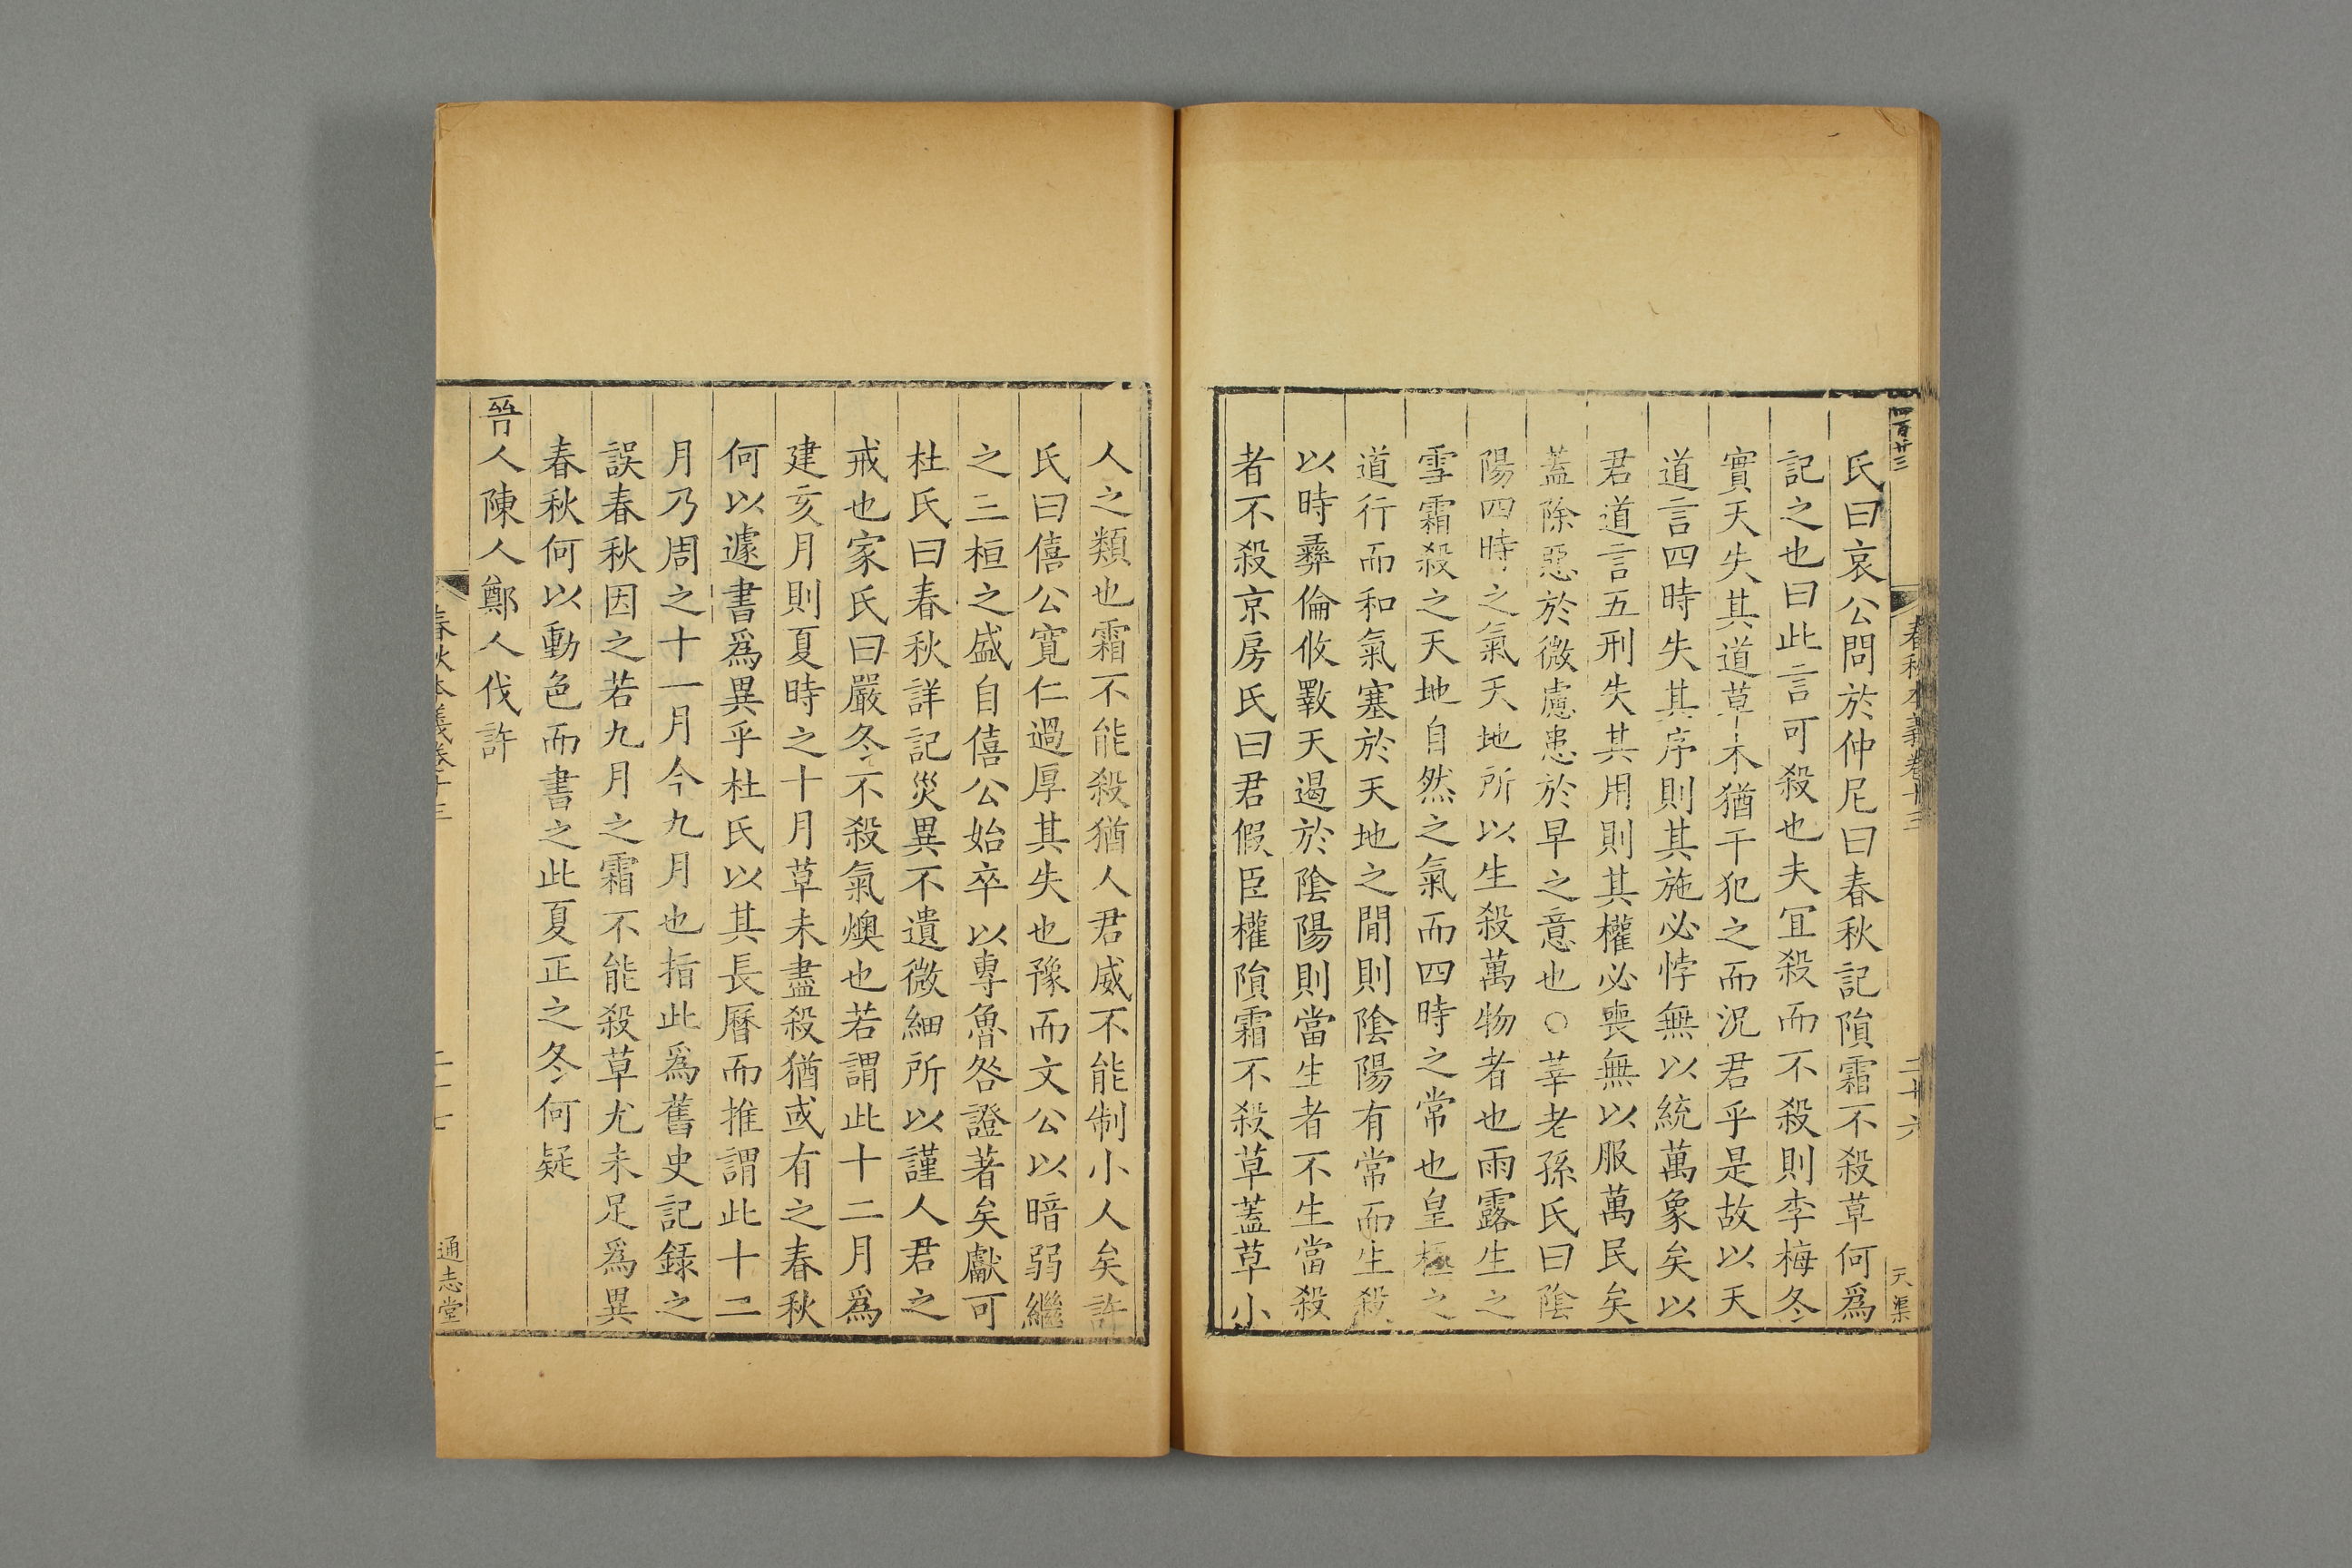 四百廿三
春秋本義卷十三
二十六
天渠
氏曰哀公問於仲尼曰春秋記隕霜不殺草何爲
記之也曰此言可殺也夫宜殺而不殺則李梅冬
實天失其道草木猶干犯之而況君乎是故以天
道言四時失其序則其施必悖無以統萬象矣以
君道言五刑失其用則其權必喪無以服萬民矣
蓋除惡於微慮患於早之意也○莘老孫氏曰陰
陽四時之氣天地所以生殺萬物者也雨露生之
雪霜殺之天地自然之氣而四時之常也皇極之
道行而和氣塞於天地之間則陰陽有常而生殺
以時彝倫攸斁天遏於陰陽則當生者不生當殺
者不殺京房氏曰君假臣權隕霜不殺草蓋草小
人之類也霜不能殺猶人君威不能制小人矣許
氏曰僖公寬仁過厚其失也豫而文公以暗弱繼
之三桓之盛自僖公始卒以專魯咎證著矣獻可
杜氏曰春秋詳記災異不遺微細所以謹人君之
戒也家氏曰嚴冬不殺氣燠也若謂此十二月爲
建亥月則夏時之十月草未盡殺猶或有之春秋
何以遽書爲異乎杜氏以其長曆而推謂此十二
月乃周之十一月今九月也指此爲舊史記録之
誤春秋因之若九月之霜不能殺草尤未足爲異
春秋何以動色而書之此夏正之冬何疑
晉人陳人鄭人伐許
春秋本義卷十三
二十七
通志堂